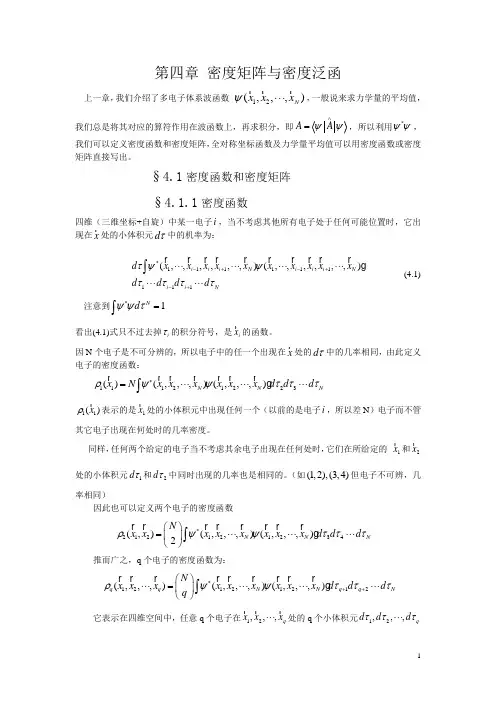 第四章 密度矩阵与密度泛函
上一章，我们介绍了多电子体系波函数 ψ(x⃗₁,x⃗₂,⋯,x⃗_N)，一般说来求力学量的平均值，
我们总是将其对应的算符作用在波函数上，再求积分，即 A=⟨ψ|Â|ψ⟩，所以利用ψ*ψ，
我们可以定义密度函数和密度矩阵，全对称坐标函数及力学量平均值可以用密度函数或密度
矩阵直接写出。
§4.1 密度函数和密度矩阵
§4.1.1 密度函数
四维（三维坐标+自旋）中某一电子 i，当不考虑其他所有电子处于任何可能位置时，它出
现在 x⃗ 处的小体积元 dτ 中的机率为：
dτ∫ψ*(x⃗₁,⋯,x⃗_{i−1},x⃗_i,x⃗_{i+1},⋯,x⃗_N)ψ(x⃗₁,⋯,x⃗_{i−1},x⃗_i,x⃗_{i+1},⋯,x⃗_N)g
dτ₁⋯dτ_{i−1}dτ_{i+1}⋯dτ_N (4.1)
注意到∫ψ*ψdτ^N=1
看出(4.1)式只不过去掉 τ_i 的积分符号，是 x⃗_i 的函数。
因 N 个电子是不可分辨的，所以电子中的任一个出现在 x⃗ 处的 dτ 中的几率相同，由此定义
电子的密度函数：
ρ₁(x⃗₁)=N∫ψ*(x⃗₁,x⃗₂,⋯,x⃗_N)ψ(x⃗₁,x⃗₂,⋯,x⃗_N)gdτ₂dτ₃⋯dτ_N
ρ₁(x⃗₁)表示的是 x⃗₁ 处的小体积元中出现任何一个（以前的是电子 i，所以差 N）电子而不管
其它电子出现在何处时的几率密度。
同样，任何两个给定的电子当不考虑其余电子出现在任何处时，它们在所给定的 x⃗₁ 和 x⃗₂
处的小体积元 dτ₁ 和 dτ₂ 中同时出现的几率也是相同的。（如(1,2),(3,4) 但电子不可辨，几
率相同）
因此也可以定义两个电子的密度函数
ρ₂(x⃗₁,x⃗₂)=(N 2)∫ψ*(x⃗₁,x⃗₂,⋯,x⃗_N)ψ(x⃗₁,x⃗₂,⋯,x⃗_N)gdτ₃dτ₄⋯dτ_N
推而广之，q 个电子的密度函数为：
ρ_q(x⃗₁,x⃗₂,⋯,x⃗_q)=(N q)∫ψ*(x⃗₁,x⃗₂,⋯,x⃗_N)ψ(x⃗₁,x⃗₂,⋯,x⃗_N)gdτ_{q+1}dτ_{q+2}⋯dτ_N
它表示在四维空间中，任意 q 个电子在 x⃗₁,x⃗₂,⋯,x⃗_q 处的 q 个小体积元 dτ₁,dτ₂,⋯,dτ_q
1